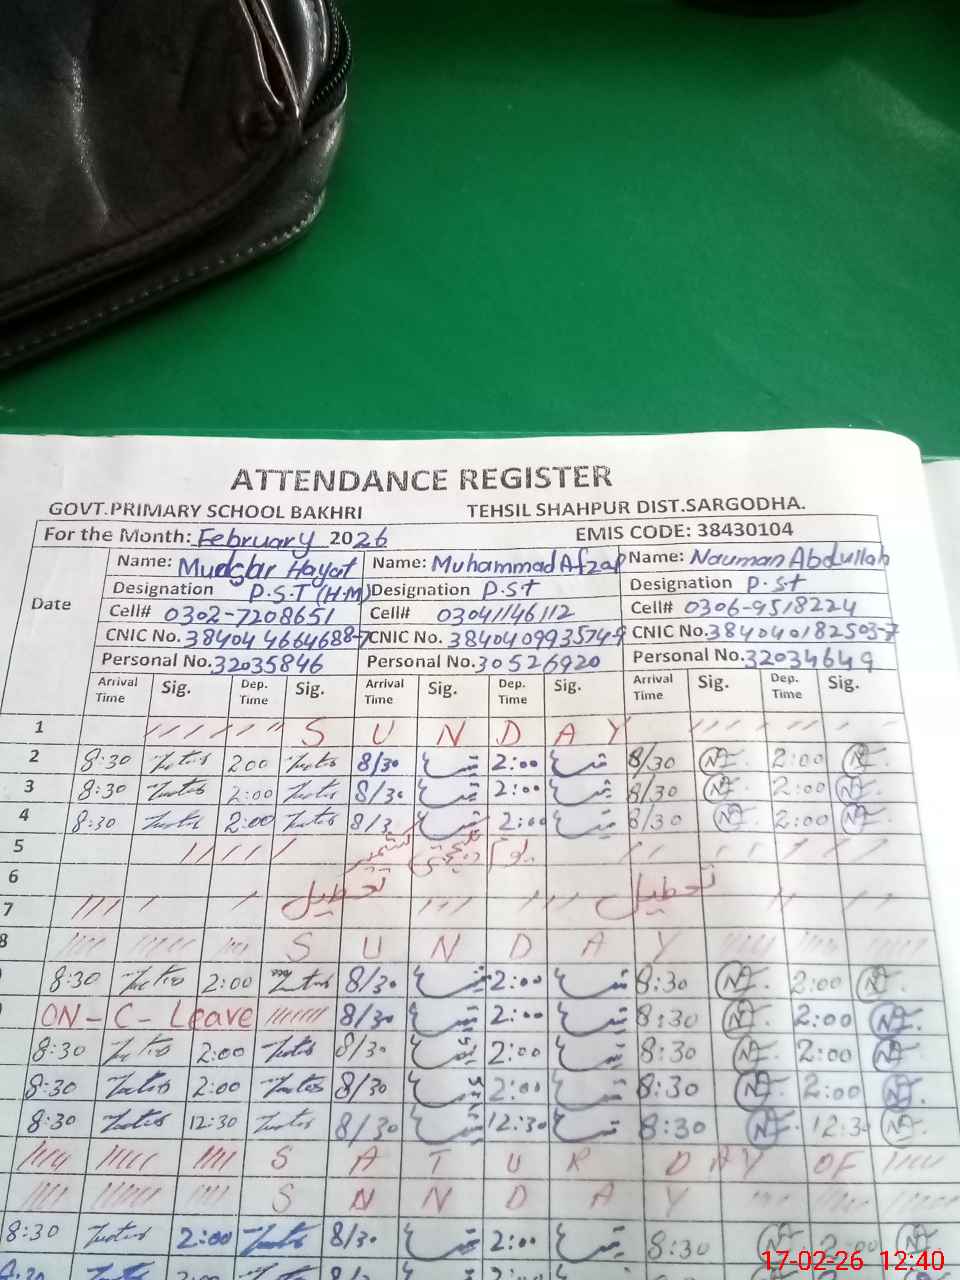 ATTENDANCE REGISTER
GOVT.PRIMARY SCHOOL BAKHRI TEHSIL SHAHPUR DIST.SARGODHA.
For the Month: February 2026 EMIS CODE: 38430104
Date Name: Mudasar Hayat Name: Muhammad Afzal Name: Nauman Abdullah
Designation P.S.T (H.M) Designation P.S.t Designation P.St
Cell# 0302-7208651 Cell# 03041146112 Cell# 0306-9518224
CNIC No. 38404 4664688-7 CNIC No. 3840409935749 CNIC No. 384040182503-7
Personal No. 32035846 Personal No. 30526920 Personal No. 32034649
Arrival Time Sig. Dep. Time Sig. Arrival Time Sig. Dep. Time Sig. Arrival Time Sig. Dep. Time Sig.
1 S U N D A Y
2 8:30 200 8/30 2:00 8/30 2:00
3 8:30 2:00 8/30 2:00 8/30 2:00
4 8:30 2:00 8/3 2:00 8/30 2:00
5 یوم یکجہتی کشمیر
6 تعطیل تعطیل
7
8 S U N D A Y
8:30 2:00 8/30 2:00 8:30 2:00
ON - C - Leave 8/30 2:00 8:30 2:00
8:30 2:00 8/30 2:00 8:30 2:00
8:30 2:00 8/30 2:00 8:30 2:00
8:30 12:30 8/30 12:30 8:30 12:3
S A T U R D AY OF
S N N D A Y
8:30 2:00 8/30 2:00 8:30 2:00
8:30 8/30
17-02-26 12:40